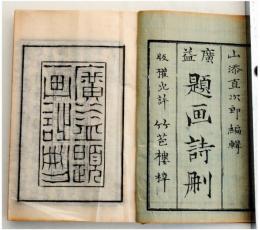 山添直次郎編輯
廣益
題画詩刪
版權免許 竹苞樓梓
廣益題
画詩刪